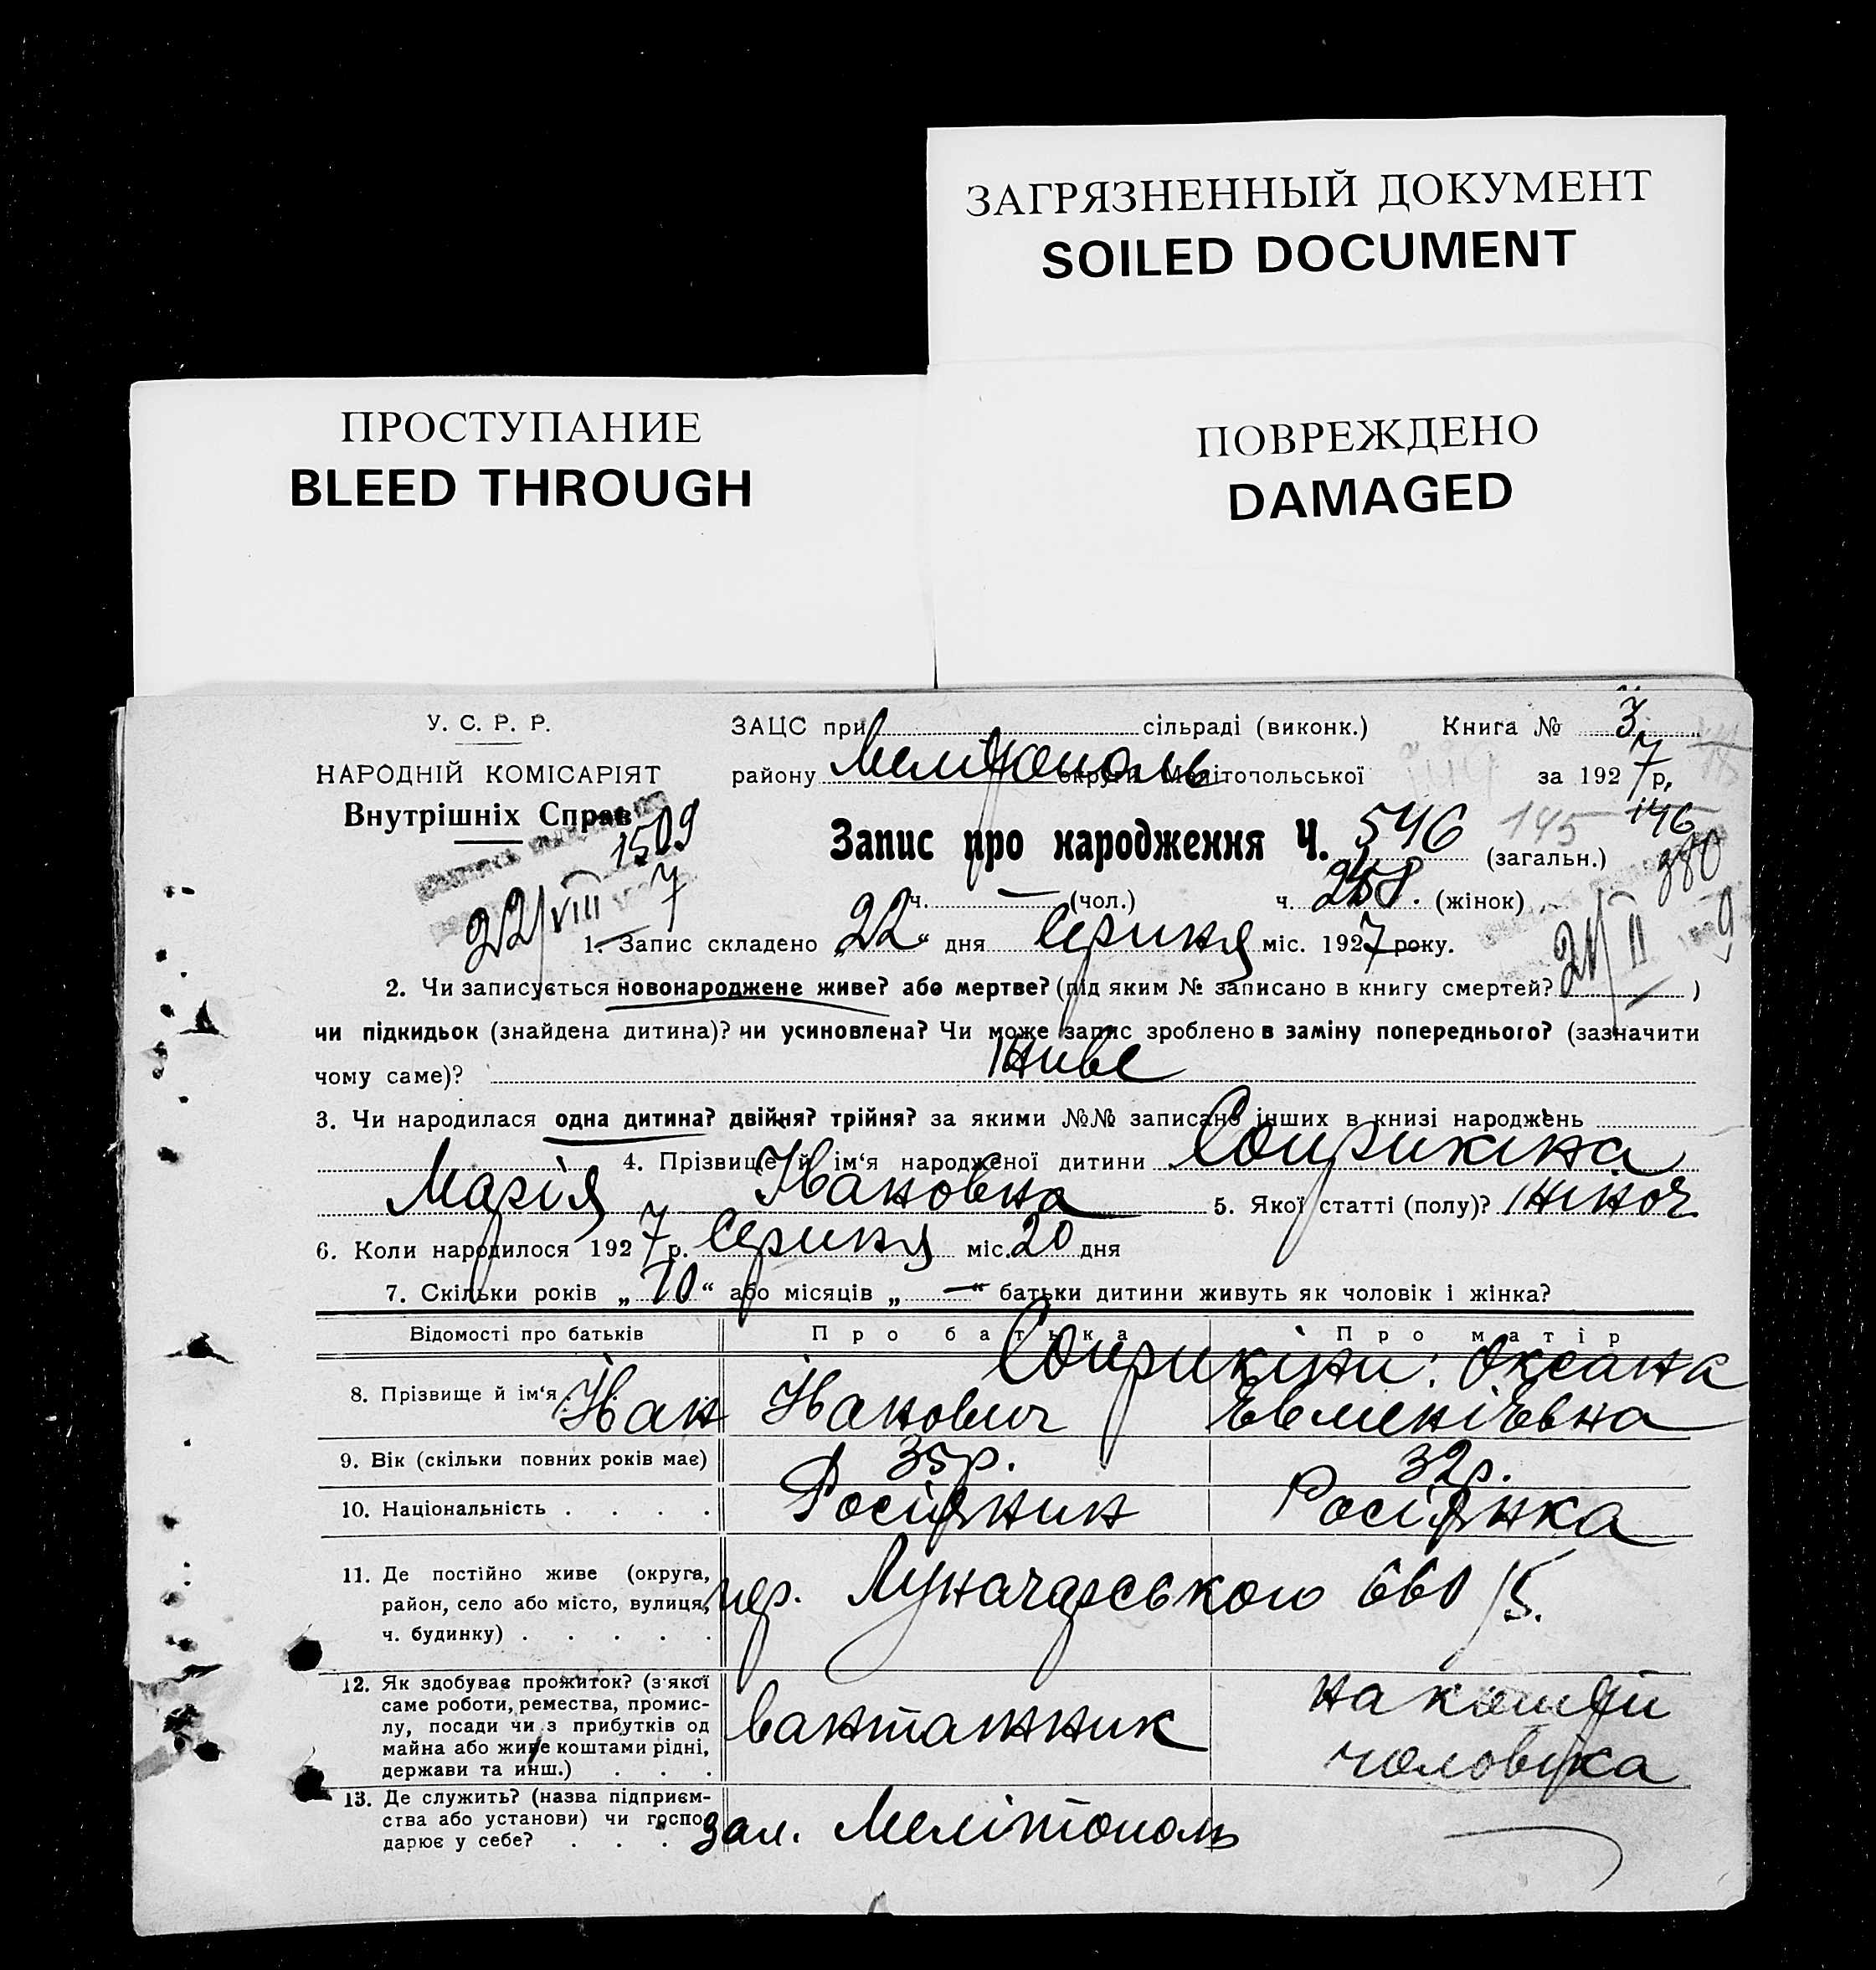 ЗАГРЯЗНЕННЫЙ ДОКУМЕНТ
SOILED DOCUMENT
ПРОСТУПАНИЕ
BLEED THROUGH
ПОВРЕЖДЕНО
DAMAGED
У. С. Р. Р.
НАРОДНІЙ КОМІСАРІЯТ
Внутрішніх Справ
1509
22/VIII 7
ЗАЦС при сільраді (виконк.) Книга № 3
району Мелітополь округи Мелітопольської за 1927 р.
Запис про народження Ч. 546 (загальн.) 145 146
380
ч. — (чол.) ч. 258. (жінок)
21/II 9
1. Запис складено „22“ дня Серпня міс. 1927 року.
2. Чи записується новонароджене живе? або мертве? (під яким № записано в книгу смертей? — )
чи підкидьок (знайдена дитина)? чи усиновлена? Чи може запис зроблено в заміну попереднього? (зазначити
чому саме)? Живе
3. Чи народилася одна дитина? двійня? трійня? за якими №№ записано інших в книзі народжень
4. Прізвище й ім‘я народженої дитини Соприкіна
Марія Івановна 5. Якої статті (полу)? жіноч
6. Коли народилося 1927 р. Серпня міс. 20 дня
7. Скільки років „10“ або місяців „—“ батьки дитини живуть як чоловік і жінка?
Відомості про батьків Про батька Про матір
8. Прізвище й ім‘я Соприкіни: Оксана
Іван Іванович Евменіевна
9. Вік (скільки повних років має) 35 р. 32 р.
10. Національність . . . . Росіянин Росіянка
11. Де постійно живе (округа,
район, село або місто, вулиця,
ч. будинку) . . . . . пер. Луначарського 660/5.
12. Як здобуває прожиток? (з'якої
саме роботи, ремества, промис-
лу, посади чи з прибутків од
майна або живе коштами рідні,
держави та инш.) . . . вантажник на кошти
чоловіка
13. Де служить? (назва підприєм-
ства або установи) чи госпо-
дарює у себе? . . . зал. Мелітополь